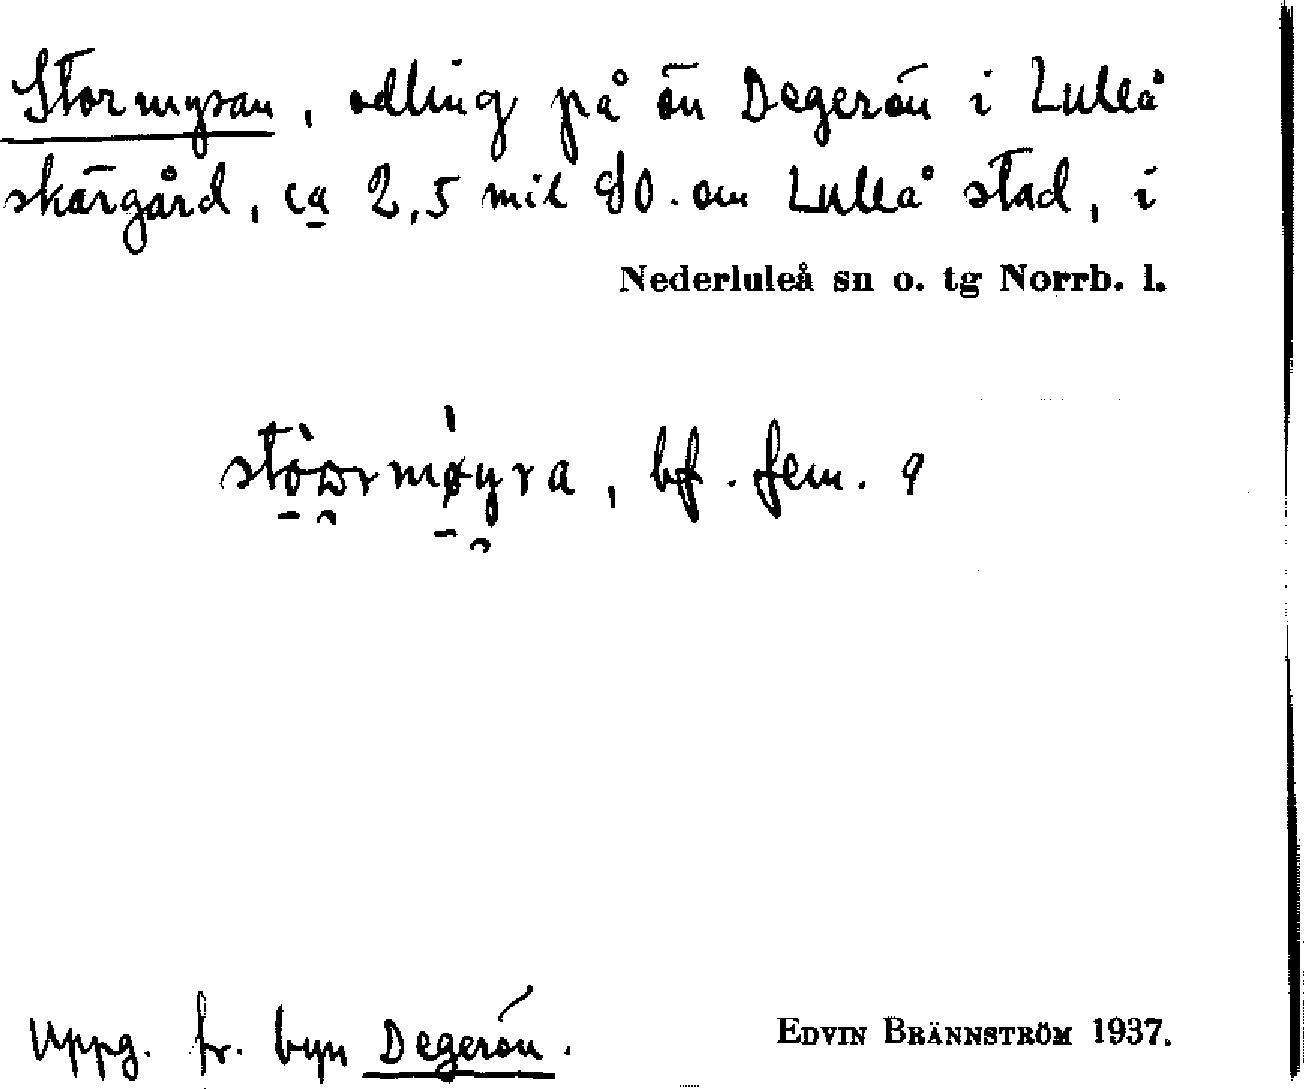 Stormyran, odling på ön Degerön i Luleå
skärgård, ca 2,5 mil SO. om Luleå stad, i
Nederluleå sn o. tg Norrb. l.
bf. fem. 9
Uppg. fr. byn Degerön.
EDVIN BRÄNNSTRÖM 1937.